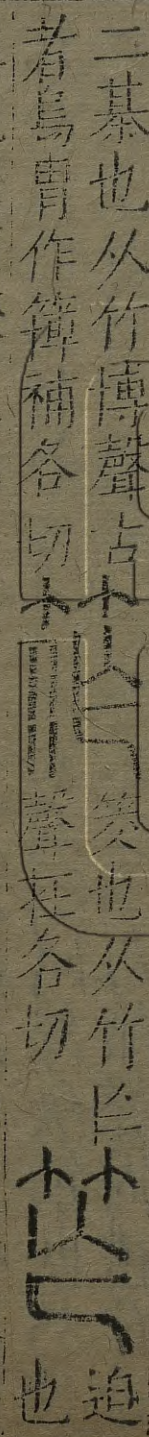 二棊也从竹博聲古
者烏冑作簙補各切
筰
筊也从竹作
聲在各切
笮
迫
也